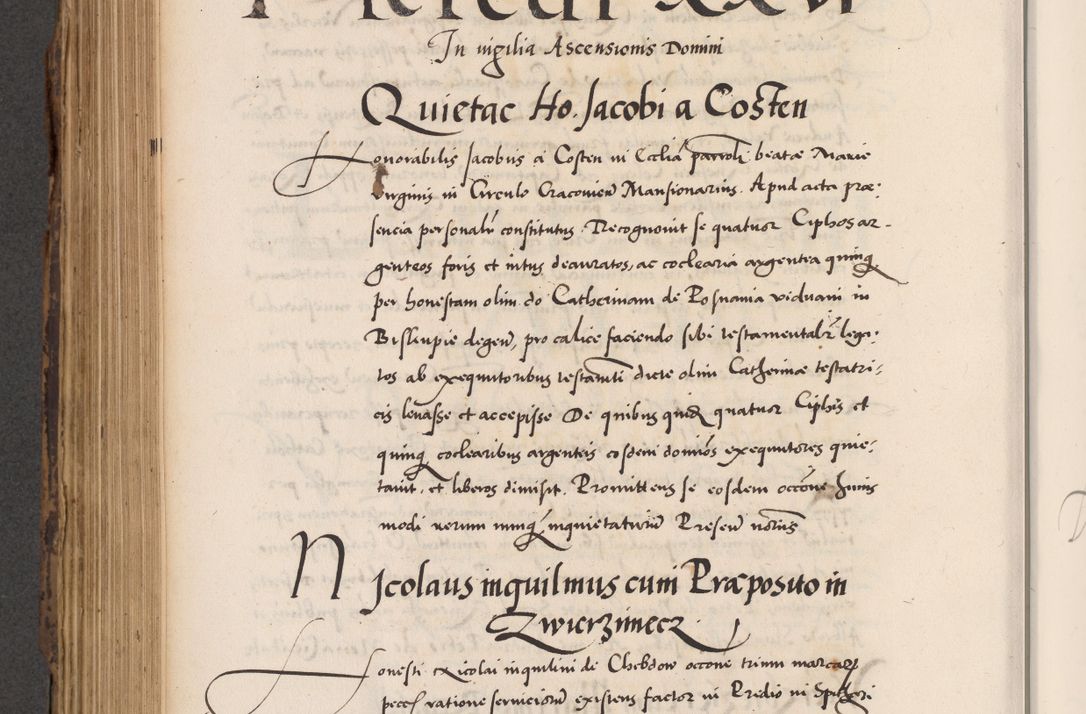 In vigilia Ascensionis Domini
Quietac Ho. Jacobi a Costen
Honorabilis Jacobus a Costen in Ecclia parroli beatae Marie
Virginis in Circulo Cracovien Mansionarius. Apud acta præ-
sencia personalr constitutus. Recognovit se quatuor Ciphos ar-
genteos foris et intus deauratos, ac coclearia argentea quinq
per honestam olim do Catherinam de Posnania viduam in
Biskupie degen, pro calice faciendo sibi testamentalr lega-
tos ab exequutoribus testamti dicte olim Catherinæ testatri-
cis levasse et accepisse De quibus quid quatuor Ciphis et
quinq coclearibus argenteis eosdem dominos exequutores quie-
tavit, et liberos dimisit. Promittens se eosdem occone huius
modi rerum nunq inquietaturum Presen
Nicolaus inquilinus cum Præposito in
Zwierzinecz
Honesti Nicolai inquilini de Chebdow occone trium marcar
ratione serviciorum existens factor in Predio in